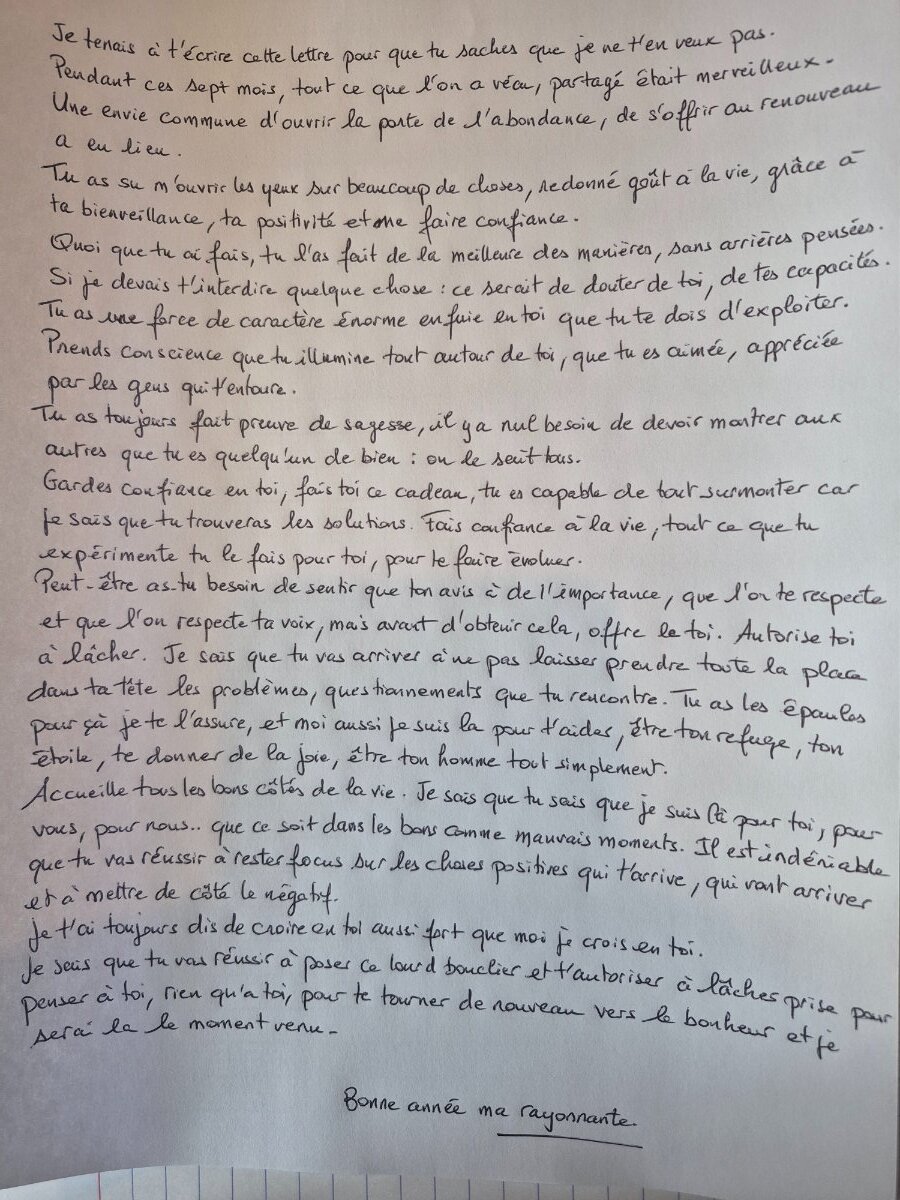 Je tenais à t'écrire cette lettre pour que tu saches que je ne t'en veux pas.
Pendant ces sept mois, tout ce que l'on a vécu, partagé était merveilleux.
Une envie commune d'ouvrir la porte de l'abondance, de s'offrir au renouveau
a eu lieu.
Tu as su m'ouvrir les yeux sur beaucoup de choses, redonné goût à la vie, grâce à
ta bienveillance, ta positivité et me faire confiance.
Quoi que tu ai fais, tu l'as fait de la meilleure des manières, sans arrières pensées.
Si je devais t'interdire quelque chose : ce serait de douter de toi, de tes capacités.
Tu as une force de caractère énorme enfuie en toi que tu te dois d'exploiter.
Prends conscience que tu illumine tout autour de toi, que tu es aimée, appréciée
par les gens qui t'entoure.
Tu as toujours fait preuve de sagesse, il y a nul besoin de devoir montrer aux
autres que tu es quelqu'un de bien : on le sent tous.
Gardes confiance en toi, fais toi ce cadeau, tu es capable de tout surmonter car
je sais que tu trouveras les solutions. Fais confiance à la vie, tout ce que tu
expérimente tu le fais pour toi, pour te faire évoluer.
Peut-être as-tu besoin de sentir que ton avis à de l'importance, que l'on te respecte
et que l'on respecte ta voix, mais avant d'obtenir cela, offre le toi. Autorise toi
à lâcher. Je sais que tu vas arriver à ne pas laisser prendre toute la place
dans ta tête les problèmes, questionnements que tu rencontre. Tu as les épaules
pour çà je te l'assure, et moi aussi je suis la pour t'aider, être ton refuge, ton
étoile, te donner de la joie, être ton homme tout simplement.
Accueille tous les bons côtés de la vie. Je sais que tu sais que je suis là pour toi, pour
vous, pour nous.. que ce soit dans les bons comme mauvais moments. Il est indéniable
que tu vas réussir à rester focus sur les choses positives qui t'arrive, qui vont arriver
et à mettre de côté le négatif.
je t'ai toujours dis de croire en toi aussi fort que moi je crois en toi.
Je sais que tu vas réussir à poser ce lourd bouclier et t'autoriser à lâches prise pour
penser à toi, rien qu'a toi, pour te tourner de nouveau vers le bonheur et je
serai la le moment venu-
Bonne année ma rayonnante.